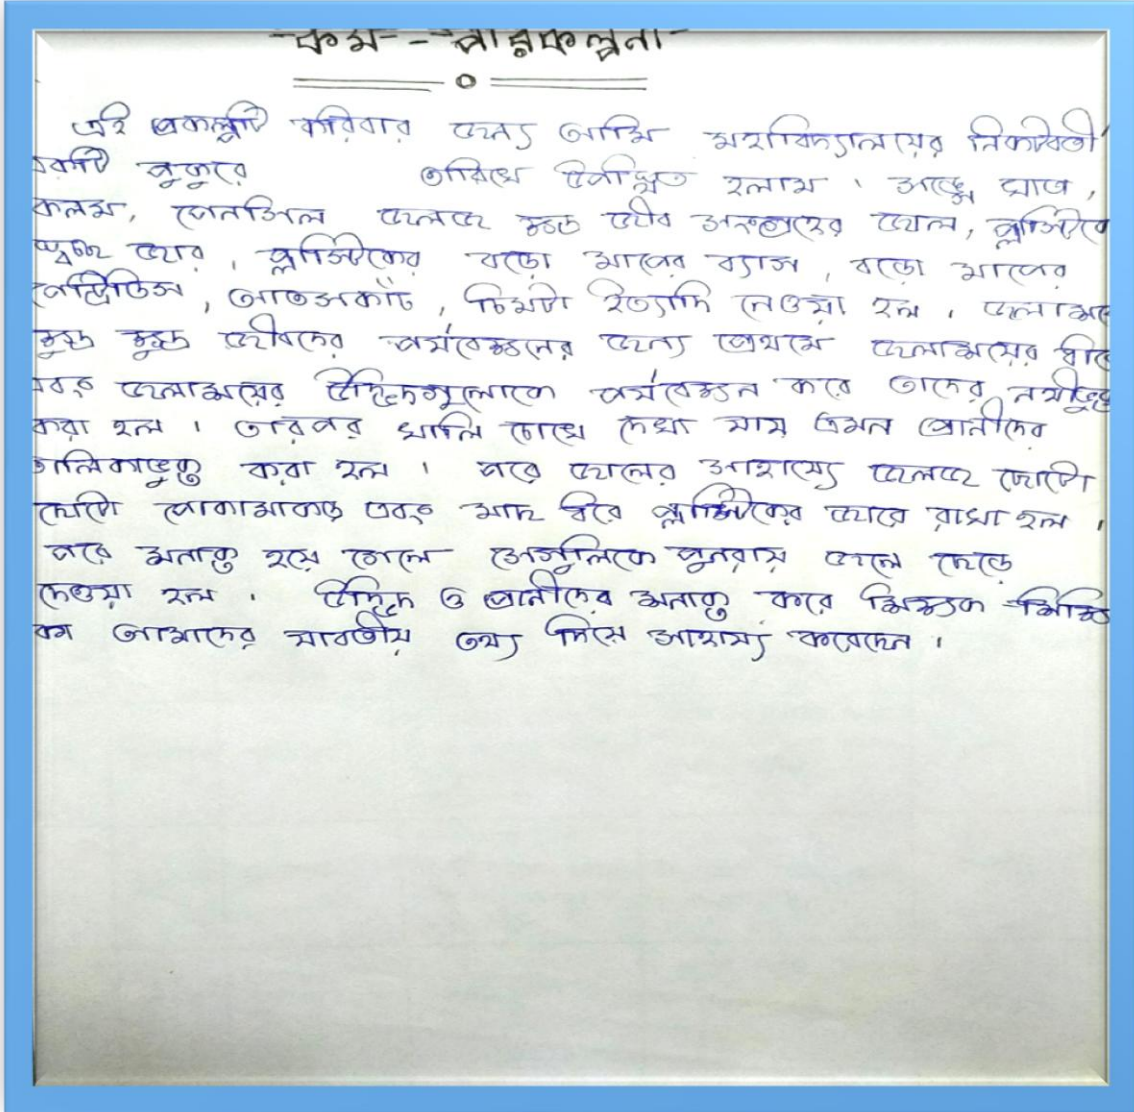 কর্ম - পরিকল্পনা
এই প্রকল্পটি করিবার জন্য আমি মহাবিদ্যালয়ের নিকটবর্তী
একটি পুকুরে তারিখে উপস্থিত হলাম । সঙ্গে খাতা,
কলম, পেনসিল জলজ ক্ষুদ্র জীব সংগ্রহের জাল, প্লাস্টিকে
স্বচ্ছ জার, প্লাস্টিকের বড়ো মাপের ব্যাগ, বড়ো মাপের
পেট্রিডিস, আতসকাঁচ, চিমটা ইত্যাদি নেওয়া হল । জলাশয়ে
ক্ষুদ্র ক্ষুদ্র জীবদের পর্যবেক্ষনের জন্য প্রথমে জলাশয়ের ধারে
এবং জলাশয়ের উদ্ভিদগুলোকে পর্যবেক্ষন করে তাদের নথীভুক্ত
করা হল । তারপর খালি চোখে দেখা যায় এমন প্রানীদের
তালিকাভুক্ত করা হল । পরে জালের সাহায্যে জলজ ছোটো
ছোটো পোকামাকড় এবং মাছ ধরে প্লাস্টিকের জারে রাখা হল ।
পরে শনাক্ত হয়ে গেলে সেগুলিকে পুনরায় জলে ছেড়ে
দেওয়া হল । উদ্ভিদ ও প্রানীদের শনাক্ত করে শিক্ষক-শিক্ষি
কা আমাদের যাবতীয় তথ্য দিয়ে সাহায্য করেছেন ।